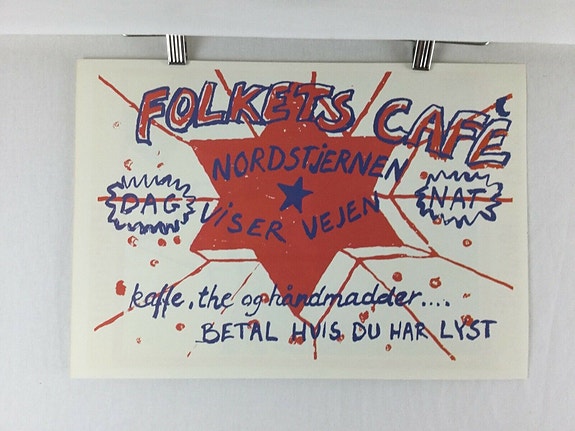 FOLKETS CAFÉ
NORDSTJERNEN
DAG
NAT
VISER VEJEN
kaffe, the og håndmadder....
BETAL HVIS DU HAR LYST